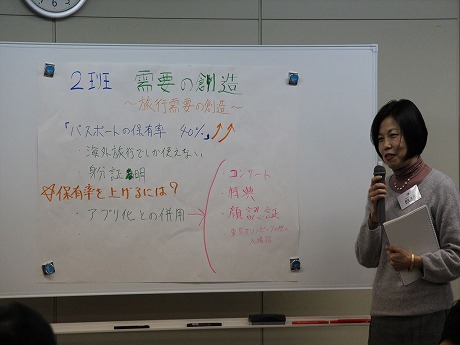 2班 需要の創造
～旅行需要の創造～
「パスポートの保有率 40%」
・海外旅行でしか使えない
・身分証明
保有率を上げるには?
・アプリ化との併用
コンサート
・特典
・顔認証